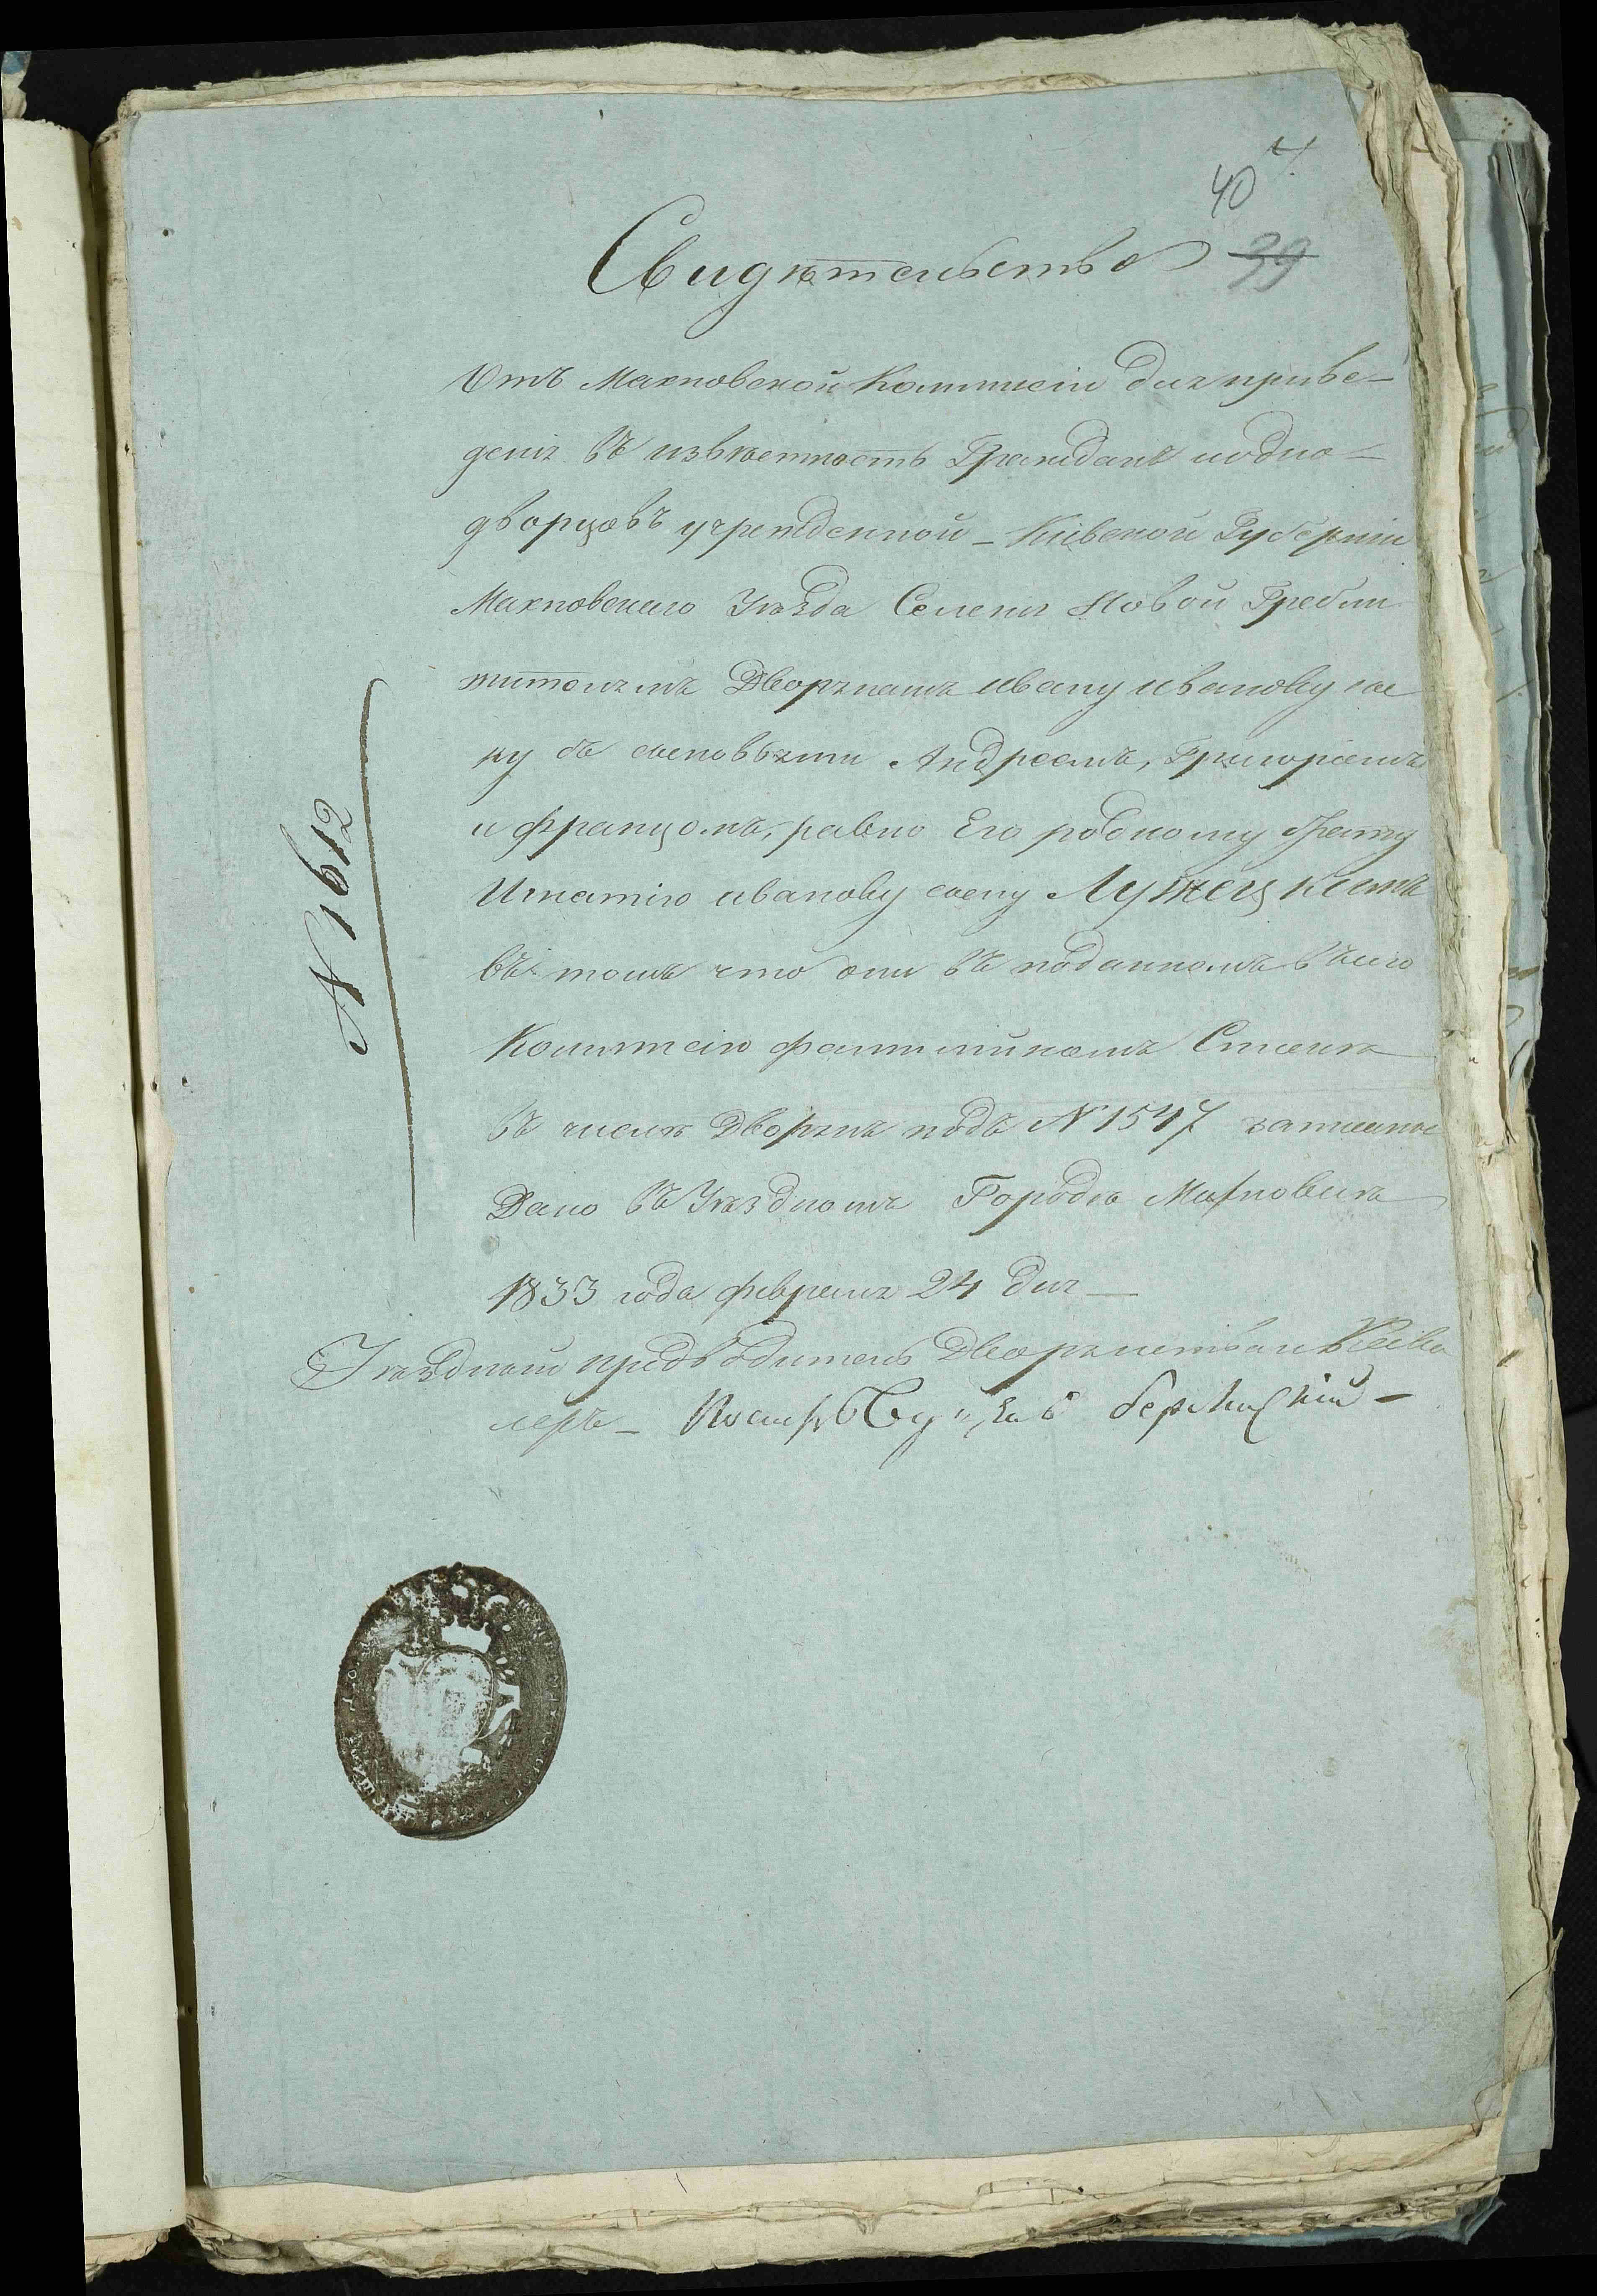 40
39
Свидѣтельство
Отъ Махновской Коммисіи для приве-
денія въ извѣстность Гражданъ иодно-
дворцовъ учрежденной - Кіевской Губерніи
Махновскаго Уѣзда Селенія Новой Гребли
жителямъ Дворянамъ ивану иванову сы
ну съ сыновьями Андреемъ, Григоріемъ
и францомъ, равно Его родному брату
Игнатію иванову сыну Лужецкимъ
въ томъ что они въ поданномъ въ сію
Коммисію фамилійномъ Спискѣ
въ числѣ Дворянъ подъ N 1547 записаны
Дано въ Уѣздномъ Городѣ Махновкѣ
1833 года февраля 24 дня
Уѣздный предводитель Дворянства и Кава
леръ -
N 1612